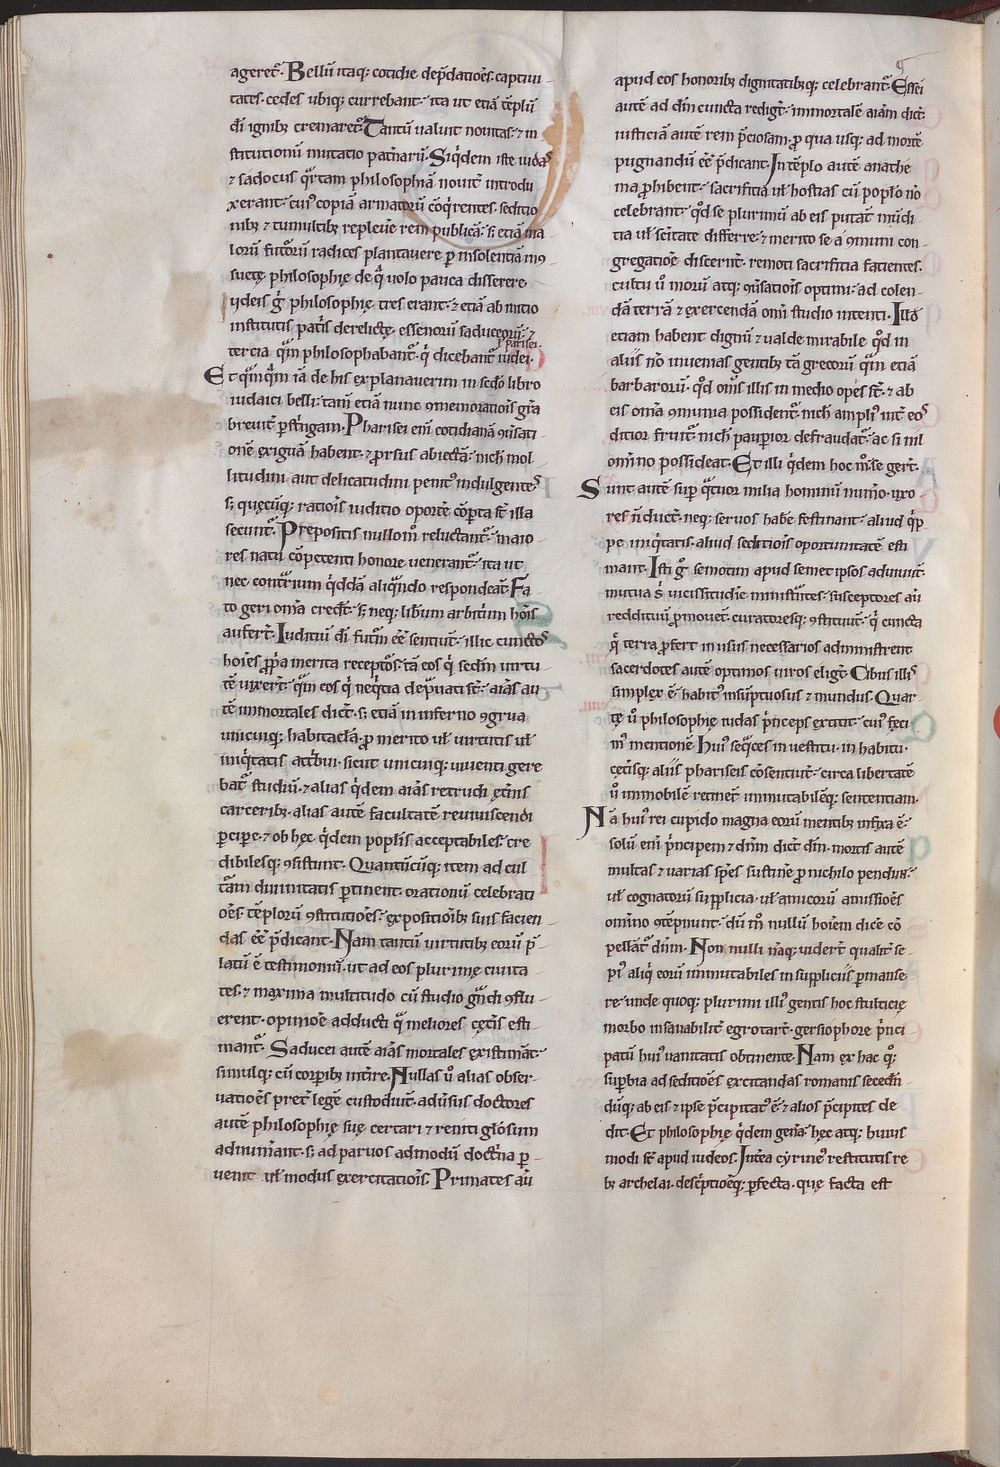 ageret᷑. Bellū itaq; cotidie dep̄datiōes. captiui-
tates. cedes ubiq; currebant᷑. ita ut etiā tēplū
dī ignib; cremaret᷑. Tantū ualuit nouitas. ⁊ in
stitutionū mutatio pat̄narū. Siq̇dem iste iudas
⁊ sadocus q̄rtam philosophiā nouit̄ introdu
xerant. cui᷒ copiā armatorū cōq̇rentes. seditio
nib; ⁊ tumultib; repleuē rem publicā. s; etiā ma
lorū futōrū radices plantauere ꝑ insolentiā inꝯ
suetę philosophię de q̄ uolo pauca disserere.
yudeis ḡ philosophię tres erant. ⁊ etiā ab initio
institutis pat̄is derelictę. essenorū saduceorū. ⁊
tercia q̄m philosophabant᷑ q̇ dicebant᷑ iudei.
ł pharisei.
Et q̄mq̄m iā de his explanauerim in sc̄do libro
iudaici belli. tam̄ etiā nunc ꝯmemoratiōis gr̄a
breuit̄ ꝑstringam. Pharisei enī cotidianā ꝯuersati
onē exiguā habent. ⁊ ꝓrsus abiectā. nichil mol
litudini aut delicatudini penit᷒ indulgentes
s; quęcūq; ratiōis iuditio oportē cōꝑta st̄ illa
secunt᷑. Prepositis nullom̄ reluctant᷑. maio
res natu cōpetenti honore uenerant᷑. ita ut
nec cont̄rium q̇ddā aliq̄ndo respondeāt. Fa
to geri om̄ia credt̄. s; neq; liƀum arbitrium hōis
aufert̄. Iuditiū dī futūr ēē sentiut̄. illic cunctos
hoīes ꝓpia merita receptos. tā eos q̇ sedm̄ uirtu
tē uixert̄. q̄m eos q̇ neq̇tia dep̄uati st̄. aīas au
tē immortales dict̄. s; etiā in inferno ꝯgrua
unicuiq; habitacła. ꝓ merito uł uirtutis uł
iniq̇tatis atribui. sicut unicuiq; uiuenti gere
bat᷑ studiū. ⁊ alias q̇dem aīas retrudi ęt̄nis
carcerib;. alias autē facultatē reuiuiscendi
ꝑcipe. ⁊ ob hęc q̇dem popłis acceptabiles. cre
dibilesq; ꝯsistunt. Quantūcūq; item ad cul
turam diuinitatis ꝑtinent. orationū celebrati
oēs. tēplorū ꝯstitutiōes. expositionib; suis facien
das ēē p̄dicant. Nam tantū uirtutib; eorū p̄
latū ē testimoniū. ut ad eos plurimę ciuita
tes. ⁊ maxima multitudo cū studio grandi ꝯflu-
erent. opinioē adducti q̄ meliores cęt̄is esti-
mant᷑. Saducei autē aīas mortales existimāt.
simulq; cū corꝑib; int̄ire. Nullas u᷒ alias obser-
uatiōes pret̄ legē custodiut̄. adūsus doctores
autē philosophię suę certari ⁊ reniti głosum
adnum̄ant. s; ad paruos admodū doctrina ꝑ-
uenit uł modus exercitatiōis. Primates aūt
apud eos honorib; dignitatib;q; celebrant᷑. Essei
autē ad dm̄ cuncta redigt̄. immortalē aīam dict̄.
iusticiā autē rem p̄ciosam. ꝓ qua usq; ad mortē
pugnandū ēē p̄dicant. In tēplo autē anathe
ma ꝓhibent. sacrificia uł hostias cū popło nō
celebrant. qd̄ se plurimū ab eis putant mūdi
tia uł sc̄itatē differre. ⁊ merito se a ꝯmuni con-
gregatiōe discernt̄. remoti sacrificia facientes.
cultu u᷒ morū atq; ꝯuersatiōis optimi. ad colen-
dā terrā ⁊ exercendā om̄i studio intenti. Illd̄
etiam habent dignū ⁊ ualde mirabile. qd̄ in
aliis nō inuenias gentib; tā grecorū q̄m etiā
barbarorū. qd̄ om̄s illis in medio opes st̄. ⁊ ab
eis om̄ia ꝯmunia possident᷑. nich̄ ampli᷒ int̄ eos
ditior fruit᷑. nich̄ pauꝑior defraudat᷑. ac si nil
omīno possideat. Et illi q̇dem hoc m̄se gert̄.
Sunt autē sup quatuor milia hominū num̄o. uxo
res n̄ duct̄. neq; seruos habē festinant. aliud q̇p
pe iniq̇tatis. aliud seditiōis oportunitatē esti
mant. Isti ḡ semotim apud semet ipsos adiuuit̄.
mutua s vicissitudiē ministrantes. susceptores aūt
reddituū ꝓmouet̄. curatoresq; ꝯstituut̄. q̇ cuncta
q̄ terra ꝓfert in usus necessarios administrent
sacerdotes autē optimos uiros eligt̄. Cibus illis
simplex ē. habit᷒ insūptuosus ⁊ mundus. Quar
tę u᷒ philosophię iudas p̄nceps extitit. cui᷒ feci
m᷒ mentionē. Hui᷒ seq̄ces in uestitu. in habitu.
cęt̄isq; aliis phariseis cōsentiut̄. circa libertatē
u᷒ immobilē retinet̄ immutabilēq; sententiam.
Nā hui᷒ rei cupido magna eorū mentib; infixa ē.
solum enī p̄ncipem ⁊ dn̄m dict̄ dm̄. mortis autē
multas ⁊ uarias sp̄es sustinē ꝓ nichilo pendut̄.
uł cognatorū supplicia. uł amicorū amissiōes
omīno ꝯtēpnunt. dū m̄ nullū hoīem dicē cō
pellat᷑ dn̄m. Non nulli nāq; uidert̄ qualit̄ se
pi᷒ aliq̇ eorū immutabiles in suppliciis ꝑmanse
re. unde quoq; plurimi illi᷒ gentis hoc stulticię
morbo insanabilit̄ egrotart̄. gersiophore p̄nci
patū hui᷒ uanitatis obtinente. Nam ex hac q;
suꝑbia ad seditiōes excitandas romanis secedn̄
dūq; ab eis ⁊ ipse p̄cipitat᷒ ē. ⁊ alios p̄cipites de
dit. Et philosophię q̇dem gen̄a. hęc atq; huius
modi st̄ apud iudeos. Int̄ea cyrine᷒ restitutis re
b; archelai. descptiōeq; ꝑfecta. que facta est